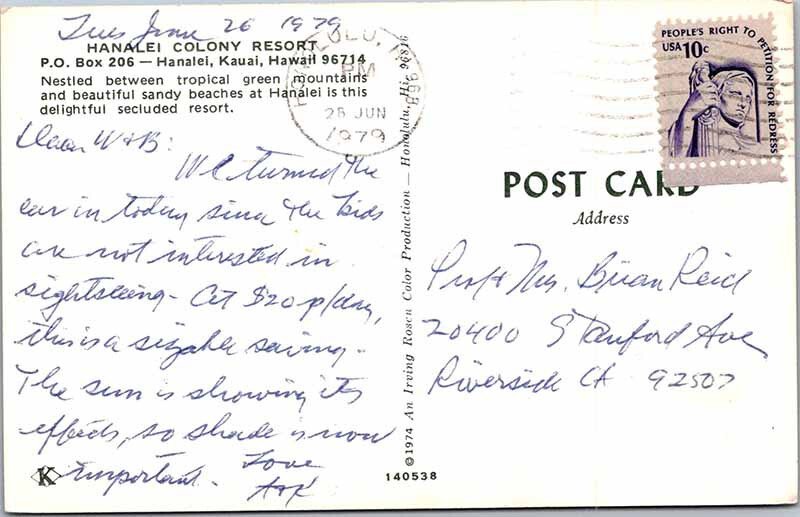 Tues June 26 1979
HANALEI COLONY RESORT
P.O. Box 206 — Hanalei, Kauai, Hawaii 96714
Nestled between tropical green mountains
and beautiful sandy beaches at Hanalei is this
delightful secluded resort.
Dear W & B:
We turned the
car in today since the kids
are not interested in
sightseeing. At $20 p/day,
this is a sizable saving.
The sun is showing its
effects, so shade is now
important. Love
K
©1974 An Irving Rosen Color Production — Honolulu, Hi. 96816
140538
PM
26 JUN
1979
PEOPLE'S RIGHT TO PETITION FOR REDRESS
USA 10c
POST CARD
Address
Prof & Mrs. Brian Reid
20400 Stanford Ave
Riverside CA 92507